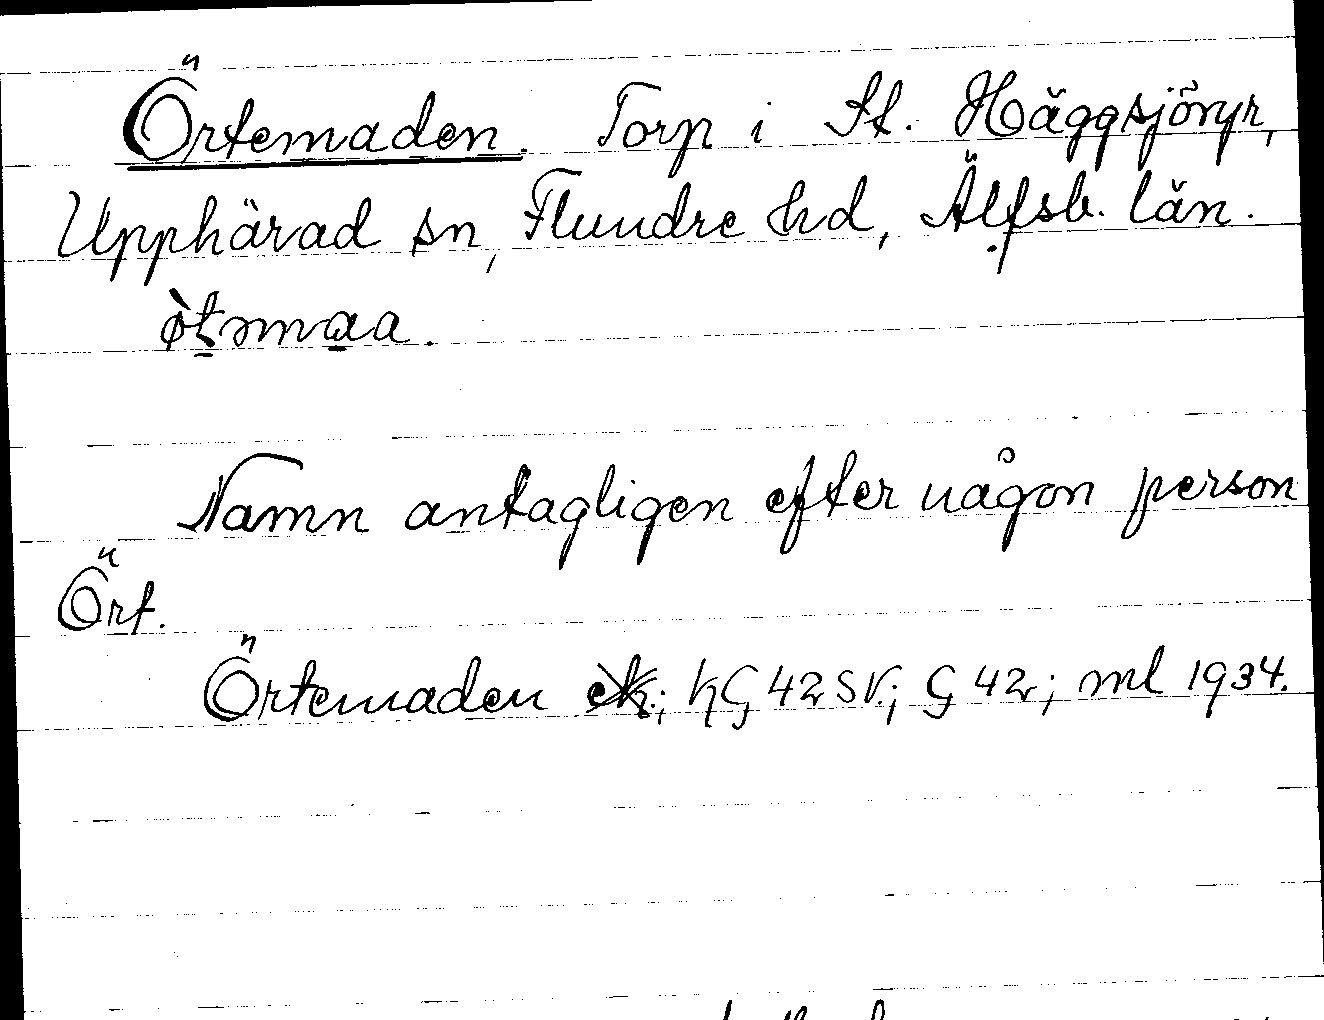 Örtemaden. Torp i St. Häggsjöryr,
Upphärad sn, Flundre hd, Älfsb. län.
òtmmaa.
Namn antagligen efter någon person
Ört.
Örtemaden ek.; KG 42 SV.; G 42; ml 1934.